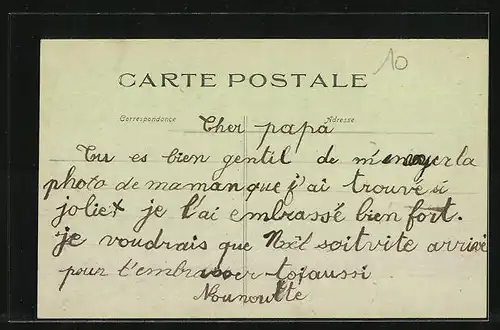 10
CARTE POSTALE
Correspondance Adresse
Cher papa
Tu es bien gentil de m'envoyer la
photo de maman que j'ai trouvé si
jolie x je l'ai embrassé bien fort.
je voudrais que Noël soit vite arrivé
pour t'embrasser toi aussi
Nounoutte